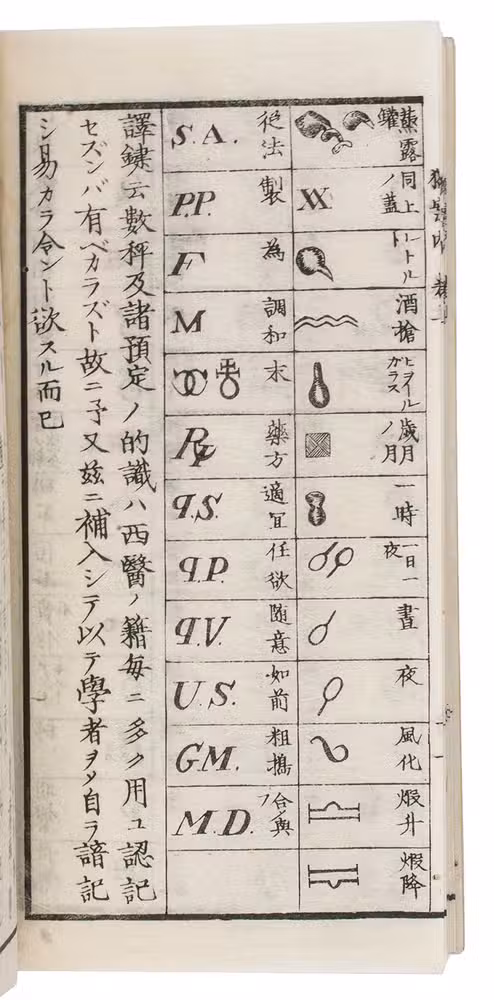 蒸露罐
同上ノ蓋
酒槍
ヒヲイルガラス
歳月ノ月
一時
一日一夜
晝
夜
風化
煅升
煅降
従法 S.A.
製 P.P.
為 F
調和 M
末
藥方 ℞
適宜 q.S.
任欲 q.P.
随意 q.V.
如前 U.S.
粗搗 G.M.
M.D.
譯鍵云數秤及諸預定ノ的讖ハ西醫ノ籍毎ニ多ク用ユ認記
セズンバ有ベカラズト故ニ予又玆ニ補入シテ以テ學者ヲメ自ラ諳記
シ易カラ令ント欲スル而已